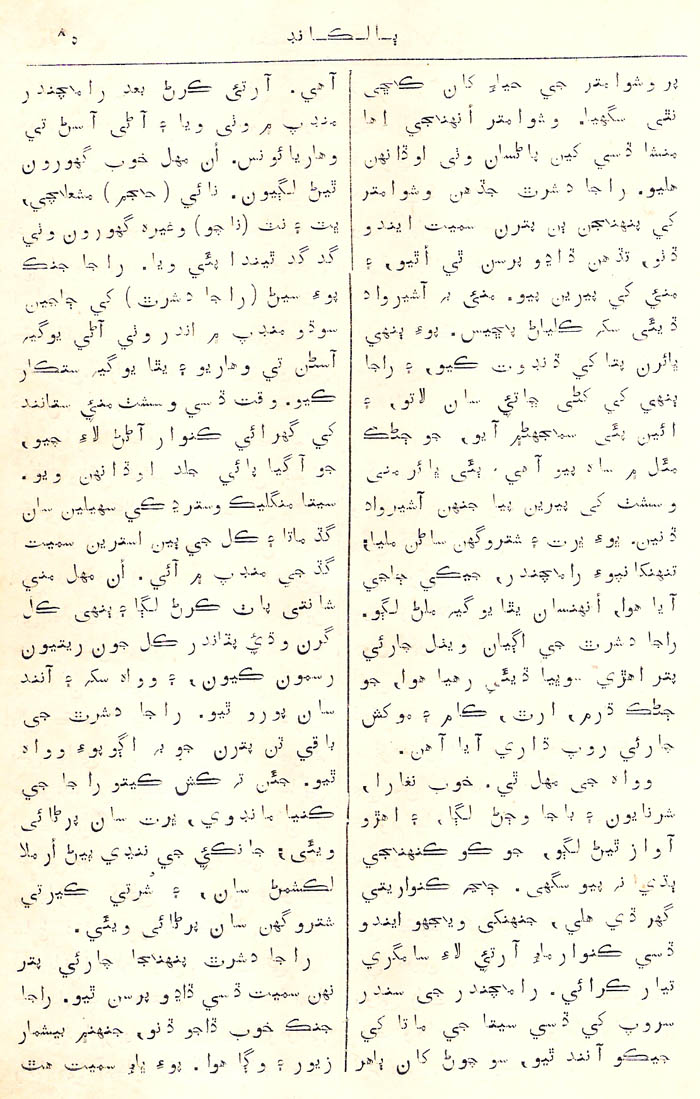 ٨٥
ٻـالـڪـانڊ
پر وشوامتر جي حياءِ کان ڪڇي
نٿي سگهيا. وشوامتر اُنهنجي اها
منشا ڏسي کين پاڻسان وٺي اوڏانهن
هليو. راجا دشرٿ جڏهن وشوامتر
کي پنهنجن ٻن پٽرن سميت ايندو
ڏٺو، تڏهن ڏاڍو پرسن ٿي اُٿيو، ۽
منئي کي پيرين پيو. منئي بہ آشيرواد
ڏيئي سکہ ڪلياڻ پڇيس. پوءِ ٻنهي
ڀائرن پتا کي ڏنڊوت ڪيو، ۽ راجا
ٻنهي کي کڻي ڇاتيءَ سان لاتو، ۽
ائين پئي سماجهڻ ۾ آيو، جو ڄڻڪ
مئل ۾ ساه پيو آهي. ٻئي ڀائر مني
وسشٽ کي پيرين پيا جنهن آشيرواد
ڏنين. پوءِ ڀرت ۽ شتروگهن ساڻن مليا؛
تنهنکانپوءِ رامچندر، جيڪي ڄاڃي
آيا هوا، اُنهنسان يٿا يوگيہ ملڻ لڳو.
راجا دشرٿ جي اڳيان ويٺل چارئي
پٽر اهڙي سوڀيا ڏيئي رهيا هوا، جو
ڄڻڪ ڌرم، ارٿ، ڪام ۽ موکش
چارئي روپ ڌاري آيا آهن.
وواه جي مهل ٿي. خوب نغارا،
شرنايون ۽ باجا وڄڻ لڳا، ۽ اهڙو
آواز ٿيڻ لڳو، جو ڪو ڪنهنجي
ٻڌي نہ پيو سگهي. ڄاڃہ ڪنواريتي
گهر ڏي هلي، جنهنکي ويجهو ايندو
ڏسي ڪنوار ماءِ آرتيءَ لاءِ سامگري
تيار ڪرائي. رامچندر جي سندر
سروپ کي ڏسي سيتا جي ماتا کي
جيڪو آنند ٿيو، سو چوڻ کان ٻاهر
آهي. آرتي ڪرڻ بعد رامچندر
منڊپ ۾ وٺي ويا ۽ آڻي آسڻ تي
وهاريائونس. اُن مهل خوب گهورون
ٿيڻ لڳيون. نائي (حجم) مشعلچي،
ڀٽ ۽ نٽ (ناچو) وغيره گهورون وٺي
گد گد ٿيندا پئي ويا. راجا جنڪ
پوءِ سيڻ (راجا دشرٿ) کي ڄاڃين
سوڌو منڊپ ۾ اندر وٺي آڻي يوگيہ
آسڻن تي وهاريو ۽ يٿا يوگيہ ستڪار
ڪيو. وقت ڏسي وسشٽ منئي ستانند
کي گهرائي ڪنوار آڻڻ لاءِ چيو،
جو آگيا پائي جلد اوڏانهن ويو.
سيتا منگليڪ وستر ڍڪي سهيلين سان
گڏ ماتا ۽ ڪل جي ٻين استرين سميت
گڏجي منڊپ ۾ آئي. اُن مهل مني
شانتي پاٺ ڪرڻ لڳا ۽ ٻنهي ڪل
گرن وڌي پٽاندر ڪل جون ريتيون
رسمون ڪيون، ۽ وواه سکہ ۽ آنند
سان پورو ٿيو. راجا دشرٿ جي
باقي ٽن پٽرن جو بہ اڳوپوءِ وواه
ٿيو. جيئن تہ ڪش ڪيتو راجا جي
ڪنيا مانڊوي، ڀرت سان پرڻائي
ويئي؛ جانڪيءَ جي ننڍي ڀيڻ اُرملا
لڪشمڻ سان، ۽ شُرتي ڪيرتي
شتروگهن سان پرڻائي ويئي.
راجا دشرٿ پنهنجا چارئي پٽر
نهن سميت ڏسي ڏاڍو پرسن ٿيو. راجا
جنڪ خوب ڏاجو ڏنو، جنهن ۾ بيشمار
زيور ۽ وڳا هوا. پوءِ ڀاءُ سميت هٿ